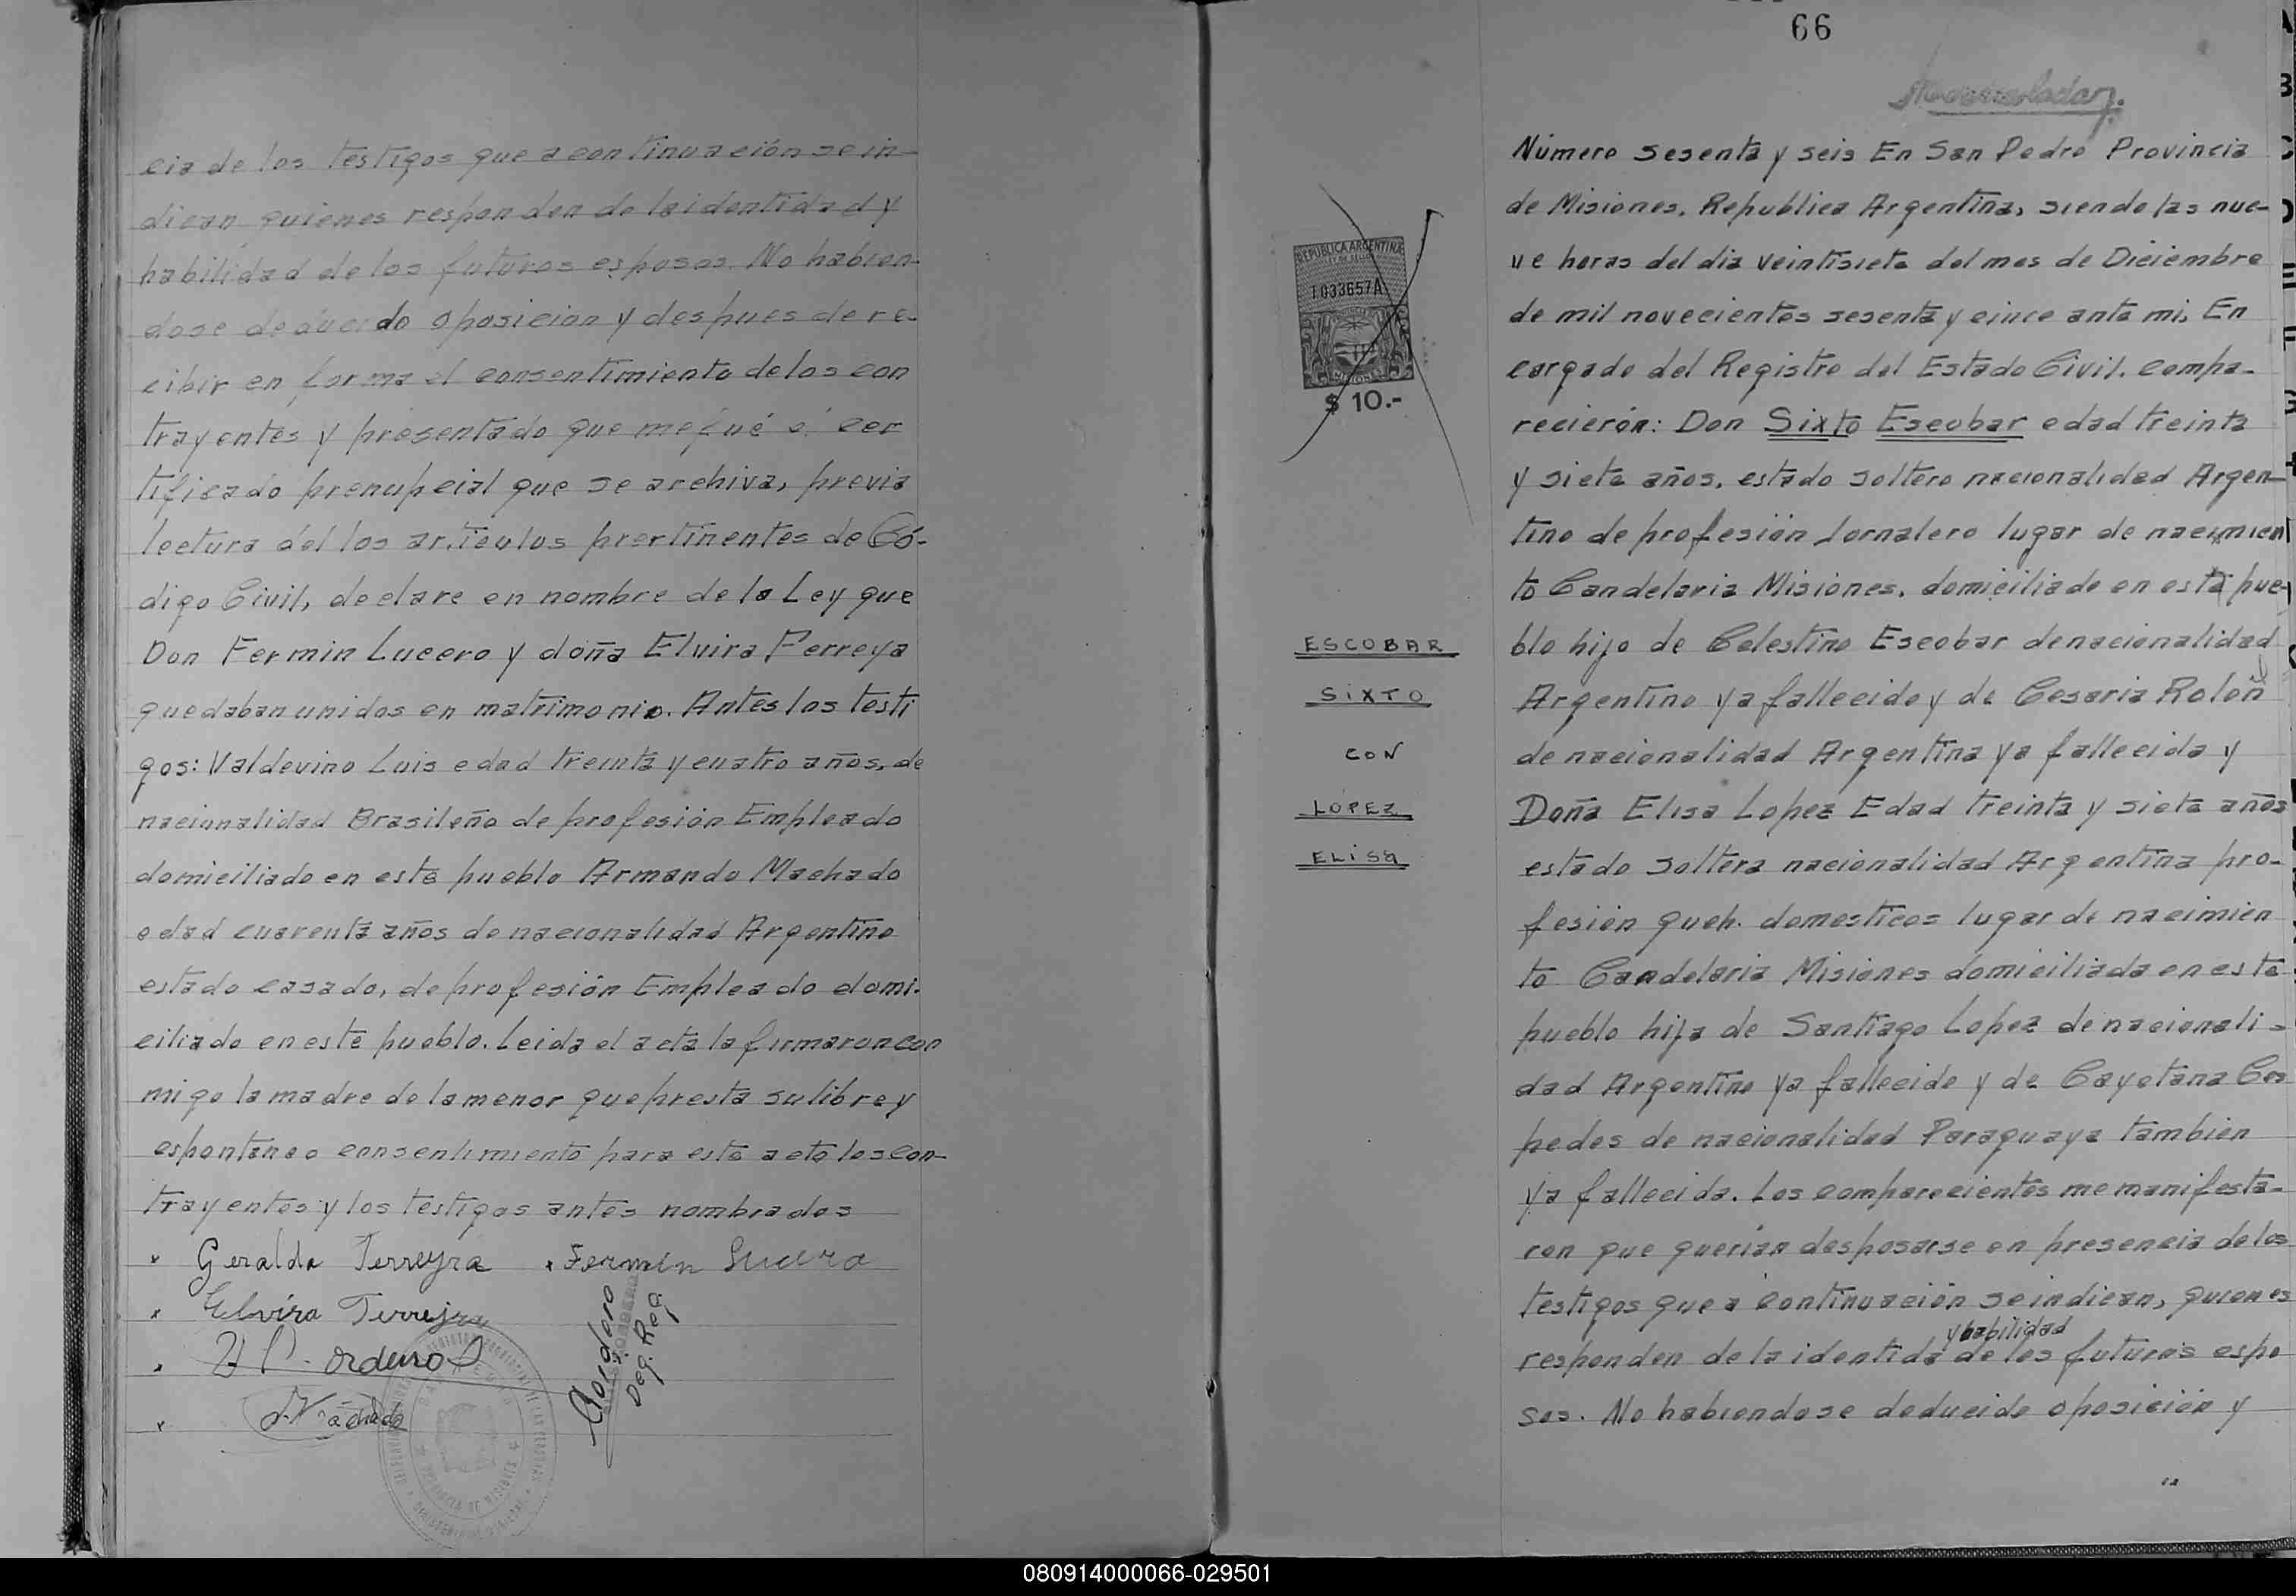 cia de los testigos que a continuación se in-
dican quienes responden de la identidad y
habilidad de los futuros esposos. No habien-
dose deducido oposicion y despues de re-
cibir en forma el consentimiento de los con
trayentes y presentado que me fué el cer
tificado prenupcial que se archiva, previa
lectura del los articulos prertinentes de Có-
digo Civil, declare en nombre de la Ley que
Don Fermin Lucero y doña Elvira Ferreya
quedaban unidos en matrimonio. Antes los testi
gos: Valdevino Luis edad treinta y cuatro años, de
nacionalidad Brasileño de profesión Empleado
domiciliado en este pueblo Armando Machado
edad cuarenta años de nacionalidad Argentino
estado casado, de profesión Empleado domi-
ciliado en este pueblo. Leida el acta la firmaron con
migo la madre de la menor que presta su libre y
espontaneo consentimiento para este acto los con-
trayentes y los testigos antes nombrados
x Geralda Ferreyra x Fermin Lucero
x Elvira Ferreyra
x
x Machado
Cordero
Deg. Reg.
66
Número sesenta y seis En San Pedro Provincia
de Misiones, Republica Argentina, siendo las nue-
ve horas del dia veintisiete del mes de Diciembre
de mil novecientos sesenta y cinco ante mi, En
cargado del Registro del Estado Civil. Compa-
recierón: Don Sixto Escobar edad treinta
y siete años, estado soltero nacionalidad Argen-
tino de profesión Jornalero lugar de nacimien
to Candelaria Misiones, domiciliado en este pue-
blo hijo de Celestino Escobar de nacionalidad
Argentino ya fallecido y de Cesaria Rolon
de nacionalidad Argentina ya fallecida y
Doña Elisa Lopez Edad treinta y siete años
estado soltera nacionalidad Argentina pro-
fesión queh. domesticos lugar de nacimien
to Candelaria Misiones domiciliada en este
pueblo hija de Santiago Lopez de nacionali-
dad Argentino ya fallecido y de Cayetana Ces
pedes de nacionalidad Paraguaya tambien
ya fallecida. Los comparecientes me manifesta-
ron que querian desposarse en presencia de los
testigos que a continuación se indican, quienes
y habilidad
responden de la identida de los futuros espo
sos. No habiendose deducido oposición y
REPUBLICA ARGENTINA
1033657A
MISIONES
$ 10.-
ESCOBAR
SIXTO
CON
LOPEZ
ELISA
080914000066-029501